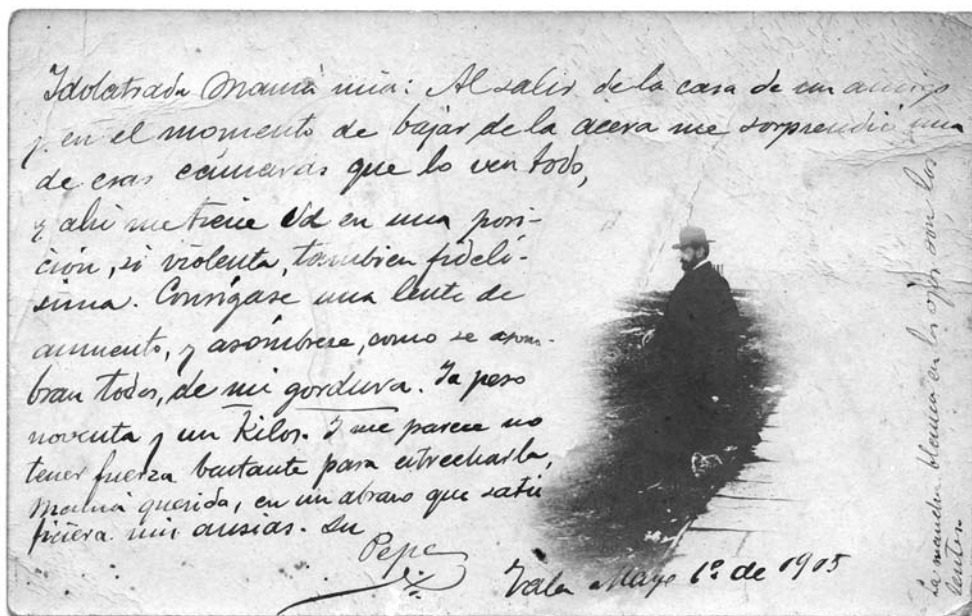 Idolatrada Mamá mía: Al salir de la casa de un amigo
y en el momento de bajar de la acera me sorprendió una
de esas cámaras que lo ven todo,
y ahí me tiene Vd en una posi-
ción, si violenta, tambien fidelí-
sima. Consígase una lente de
aumento, y asómbrese, como se asom-
bran todos, de mi gordura. Ya peso
noventa y un Kilos. Y me parece no
tener fuerza bastante para estrecharla,
Mamá querida, en un abrazo que satis
ficiera mis ansias. Su
Pepe
Mayo 1º de 1905
La mancha blanca en los ojos son los
lentes.